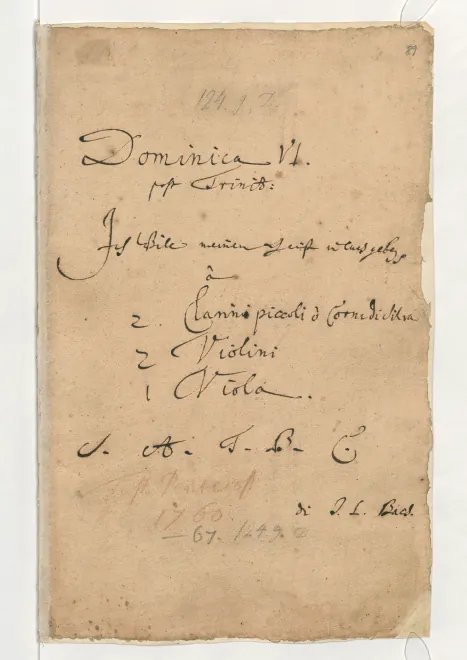 89
124.
Dominica VI.
post Trinit:
Ich Will meinen Geist in euch geben
à
2. Clarini piccoli ò Corni di Silva
2 Violini
1 Viola.
S. A. T. B. C.
1760.
di J. L. Bach.
– 67.